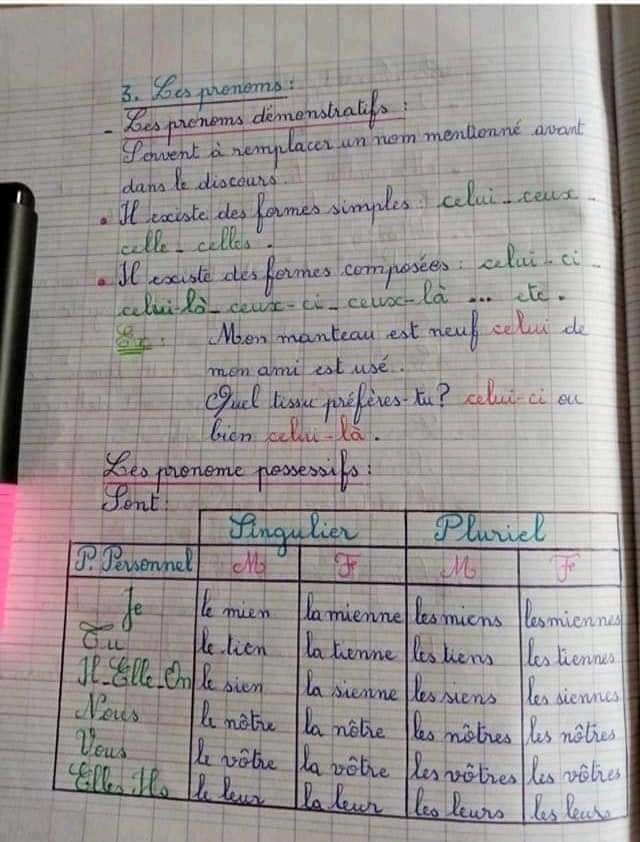 3. Les pronoms :
- Les pronoms démonstratifs :
Servent à remplacer un nom mentionné avant
dans le discours.
• Il existe des formes simples : celui - ceux -
celle - celles.
• Il existe des formes composées : celui-ci -
celui-là - ceux-ci - ceux-là ... etc.
Ex : Mon manteau est neuf celui de
mon ami est usé.
Quel tissu préfères-tu ? celui-ci ou
bien celui-là.
Les pronome possessifs :
Sont :
Singulier Pluriel
P. Personnel M F M F
Je le mien la mienne les miens les miennes
Tu le tien la tienne les tiens les tiennes
Il - Elle - On le sien la sienne les siens les siennes
Nous le nôtre la nôtre les nôtres les nôtres
Vous le vôtre la vôtre les vôtres les vôtres
Elles Ils le leur la leur les leurs les leurs